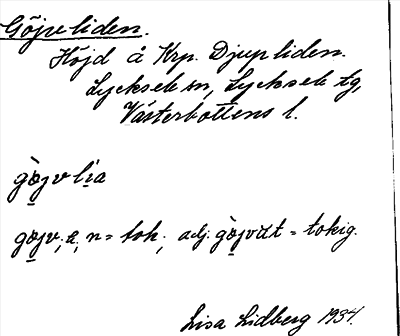 Göjveliden.
Höjd å Krp. Djupliden.
Lycksele sn, Lycksele tg,
Västerbottens l.
gòjvlia
gojv, a, n = tok, adj. gòjvät = tokig.
Lisa Lidberg 1934.